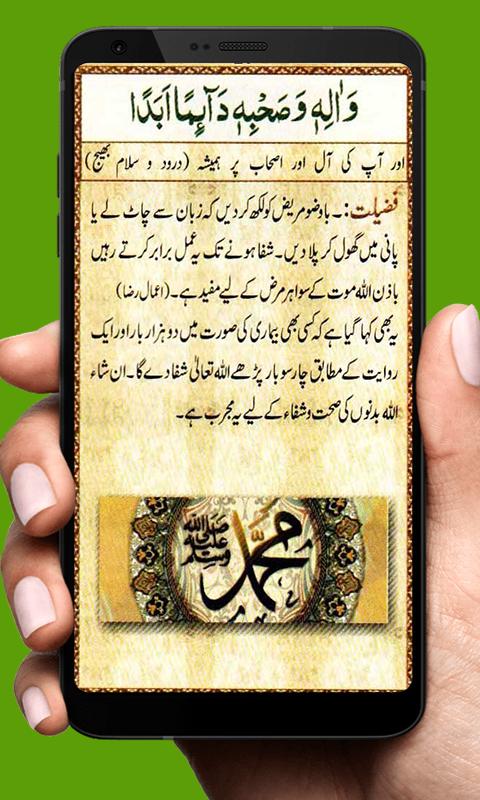 وَاٰلِهٖ وَصَحْبِهٖ دَآئِمًا اَبَدًا
اور آپ کی آل اور اصحاب پر ہمیشہ (درود و سلام بھیج)
فضیلت:۔ باوضو مریض کو لکھ کر دیں کہ زبان سے چاٹ لے یا
پانی میں گھول کر پلا دیں۔ شفا ہونے تک یہ عمل برابر کرتے رہیں
باذن اللہ موت کے سوا ہر مرض کے لیے مفید ہے۔ (اعمال رضا)
یہ بھی کہا گیا ہے کہ کسی بھی بیماری کی صورت میں دو ہزار بار اور ایک
روایت کے مطابق چار سو بار پڑھے اللہ تعالیٰ شفا دے گا۔ ان شاء
اللہ بدنوں کی صحت و شفاء کے لیے یہ مجرب ہے۔
محمد
صلى الله
عليه
وسلم